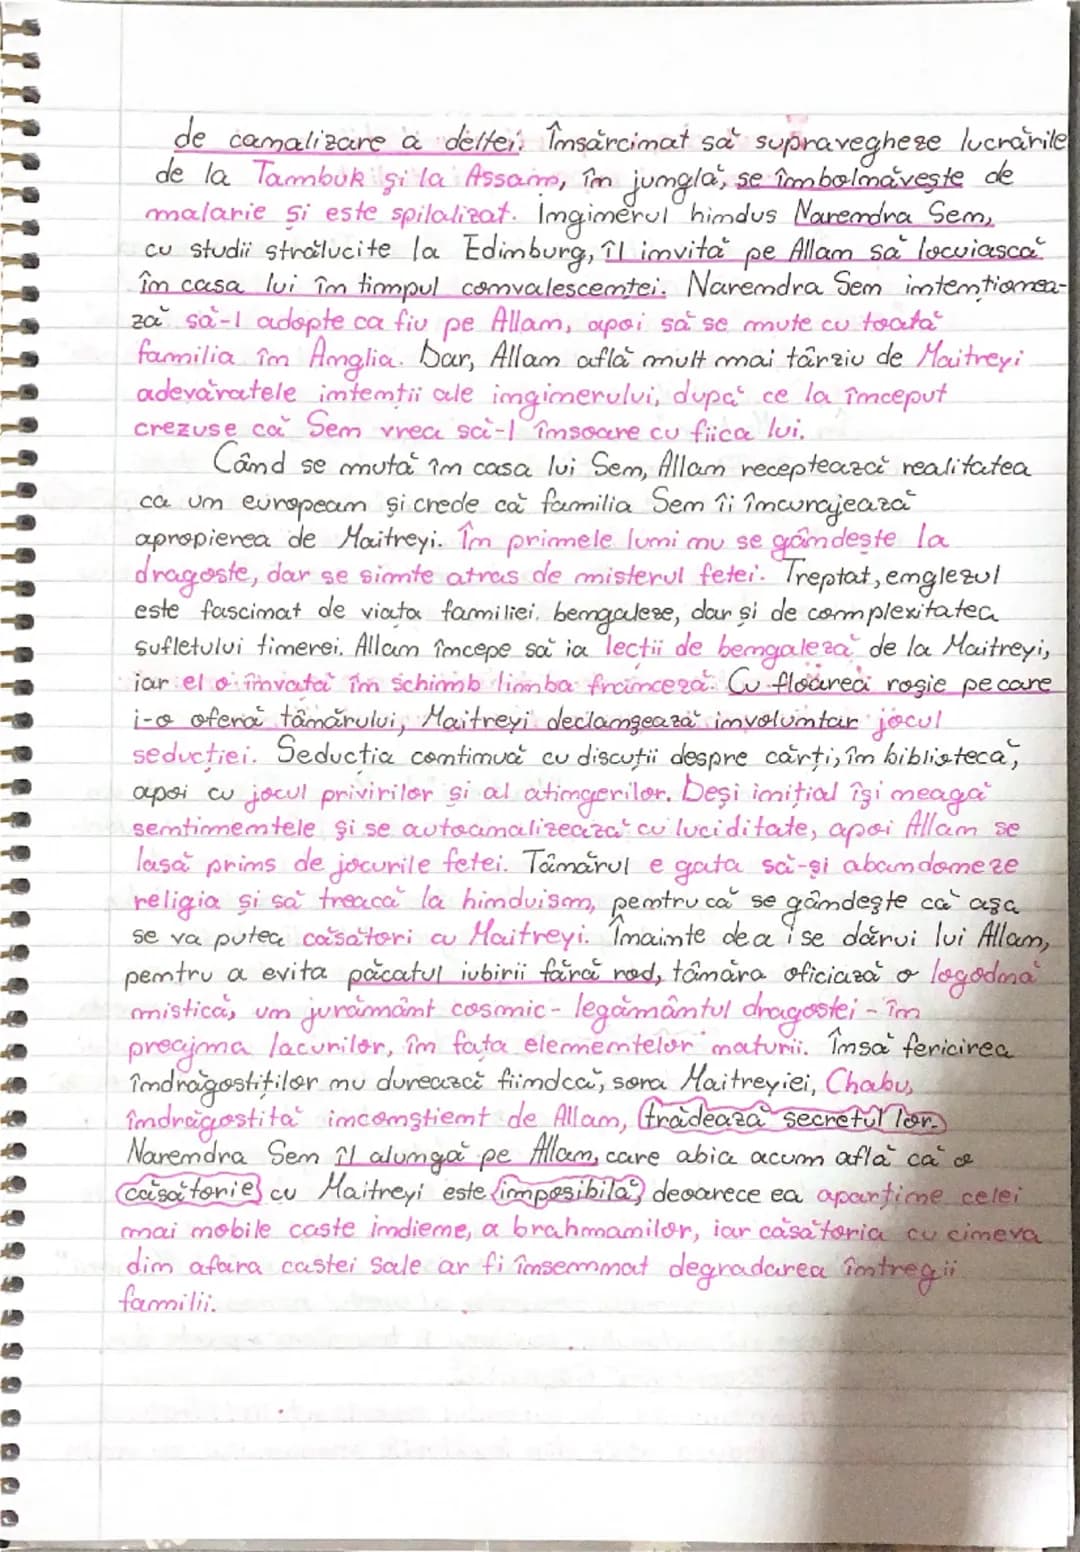 de canalizare a deltei. Însărcinat să supravegheze lucrările
de la Tambuk și la Assam, în junglă, se îmbolnăvește de
malarie și este spilalizat. Inginerul hindus Narendra Sem,
cu studii strălucite la Edinburg, îl invită pe Allan să locuiască
în casa lui în timpul convalescenței. Narendra Sem intenționea-
ză să-l adopte ca fiu pe Allan, apoi să se mute cu toată
familia în Anglia. Dar, Allan află mult mai târziu de Maitreyi
adevăratele intenții ale inginerului, după ce la început
crezuse că Sem vrea să-l însoare cu fiica lui.
Când se mută în casa lui Sem, Allan receptează realitatea
ca un european și crede că familia Sem îi încurajează
apropierea de Maitreyi. În primele luni nu se gândește la
dragoste, dar se simte atras de misterul fetei. Treptat, englezul
este fascinat de viața familiei bengaleze, dar și de complexitatea
sufletului tinerei. Allan începe să ia lecții de bengaleză de la Maitreyi,
iar el o învață în schimb limba franceză. Cu floarea roșie pe care
i-o oferă tânărului, Maitreyi declanșează involuntar jocul
seducției. Seducția continuă cu discuții despre cărți, în bibliotecă,
apoi cu jocul privirilor și al atingerilor. Deși inițial își neagă
sentimentele și se autoanalizează cu luciditate, apoi Allan se
lasă prins de jocurile fetei. Tânărul e gata să-și abandoneze
religia și să treacă la hinduism, pentru că se gândește că așa
se va putea căsători cu Maitreyi. Înainte de a i se dărui lui Allan,
pentru a evita păcatul iubirii fără rod, tânăra oficiază o logodnă
mistică, un jurământ cosmic - legământul dragostei - în
preajma lacurilor, în fața elementelor naturii. Însă fericirea
îndrăgostiților nu durează fiindcă, sora Maitreyiei, Chabu,
îndrăgostită inconștient de Allan, trădează secretul lor.
Narendra Sem îl alungă pe Allan, care abia acum află că o
căsătorie cu Maitreyi este imposibilă, deoarece ea aparține celei
mai nobile caste indiene, a brahmanilor, iar căsătoria cu cineva
din afara castei sale ar fi însemnat degradarea întregii
familii.